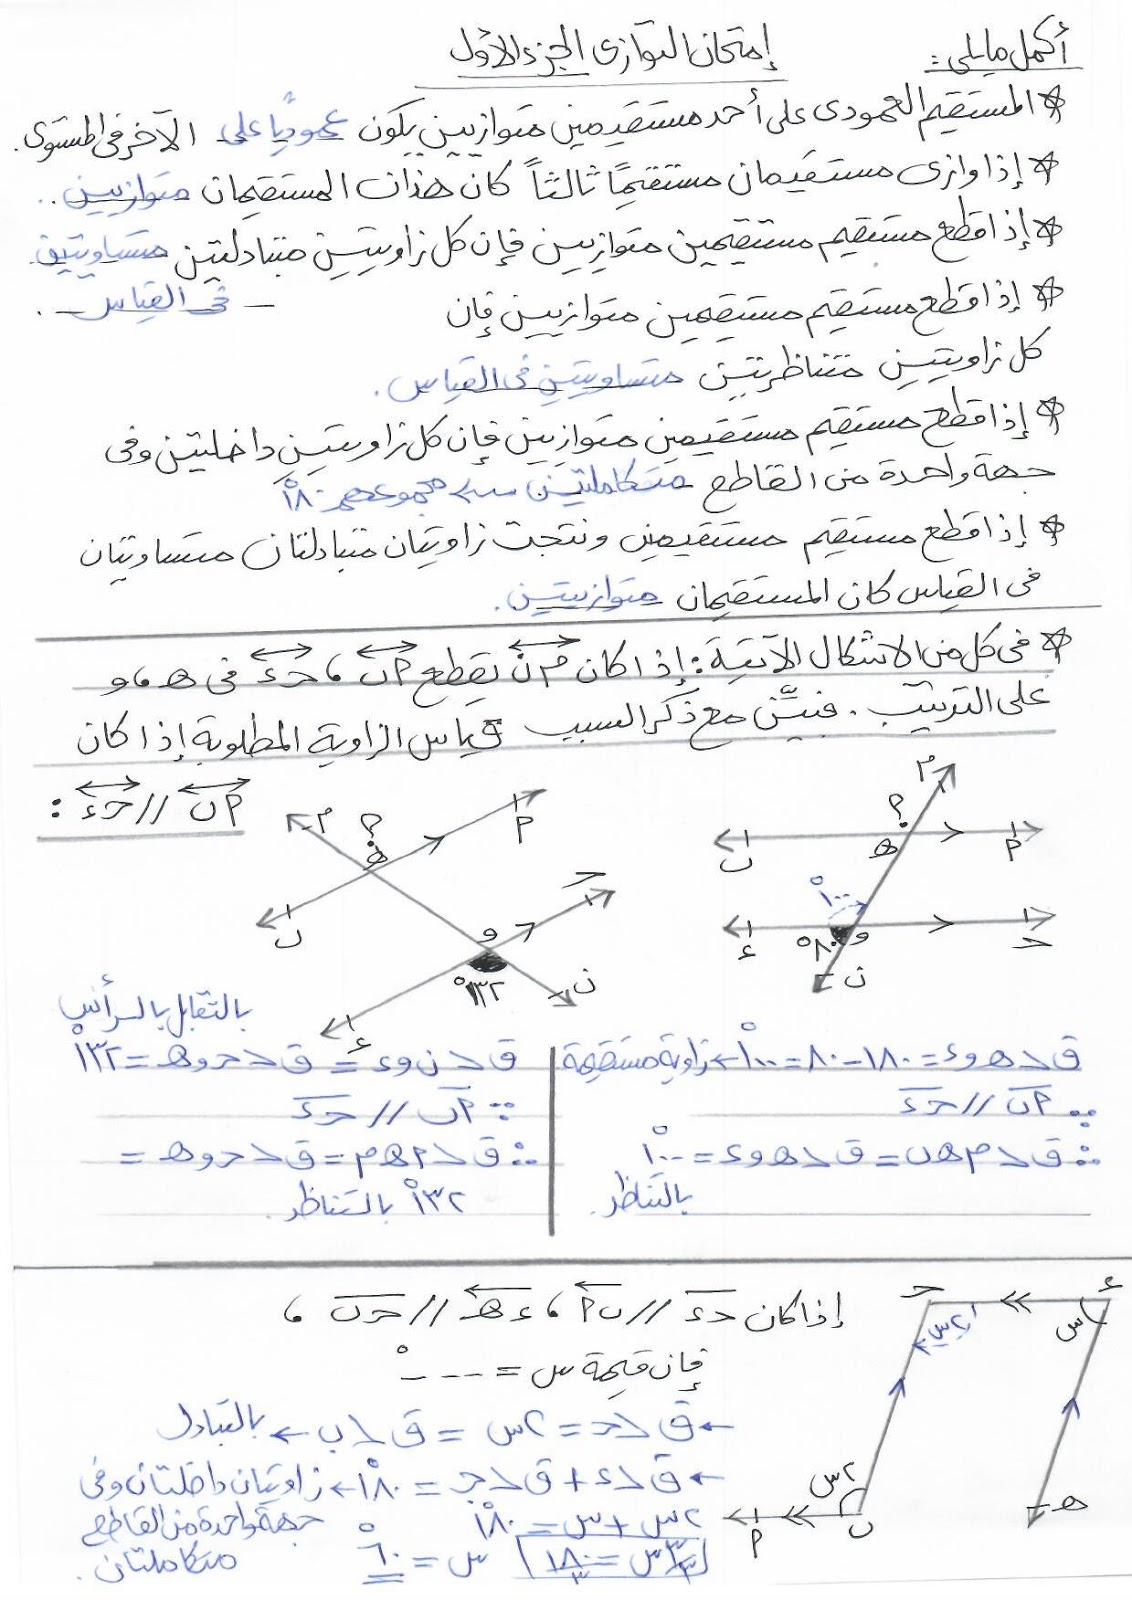 إمتحان التوازى الجزء الأول
أكمل مايلى :
* المستقيم العمودى على أحد مستقيمين متوازيين يكون عمودياً على الآخر فى المستوى.
* إذا وازى مستقيمان مستقيمًا ثالثاً كان هذان المستقيمان متوازيين ..
* إذا قطع مستقيم مستقيمين متوازيين فإن كل زاويتين متبادلتين متساويتين
فى القياس .
* إذا قطع مستقيم مستقيمين متوازيين فإن
كل زاويتين متناظرتين متساويتين فى القياس .
* إذا قطع مستقيم مستقيمين متوازيين فإن كل زاويتين داخليتين وفى
جهة واحدة من القاطع متكاملتين ← مجموعهم ١٨٠°
* إذا قطع مستقيم مستقيمين ونتجت زاويتان متبادلتان متساويتان
فى القياس كان المستقيمان متوازيتين .
* فى كل من الاشكال الآتية : إذا كان م ن يقطع ٢ ب ، حـ ء فى هـ ، و
على الترتيب . فبيّن مع ذكر السبب قياس الزاوية المطلوبة إذا كان
٢ ب // حـ ء :
م
؟
ب
هـ
٢
١٠٠°
ء
٨٠°
و
حـ
ن
م
؟
هـ
٢
ب
حـ
و
١٣٢°
ن
ء
ق > هـ و ء = ١٨٠ - ٨٠ = ١٠٠° ← زاوية مستقيمة
∵ ٢ ب // حـ ء
∴ ق > م هـ ب = ق > هـ و ء = ١٠٠°
بالتناظر .
بالتقابل بالرأس
ق > ن و ء = ق > حـ و هـ = ١٣٢°
∵ ٢ ب // حـ ء
∴ ق > ٢ هـ م = ق > حـ و هـ =
١٣٢° بالتناظر .
إذا كان حـ ء // ب ٢ ، ء هـ // حـ ب ،
فإن قيمة س = ---°
حـ
ء
س
٢س
٢س
هـ
ب
٢
← ق > حـ = ٢س = ق > ب ← بالتبادل
← ق > ء + ق > جـ = ١٨٠° ← زاويتان داخلتان وفى
جهة واحدة من القاطع
متكاملتان .
٢س + س = ١٨٠°
٣س/٣ = ١٨٠/٣ س = ٦٠°